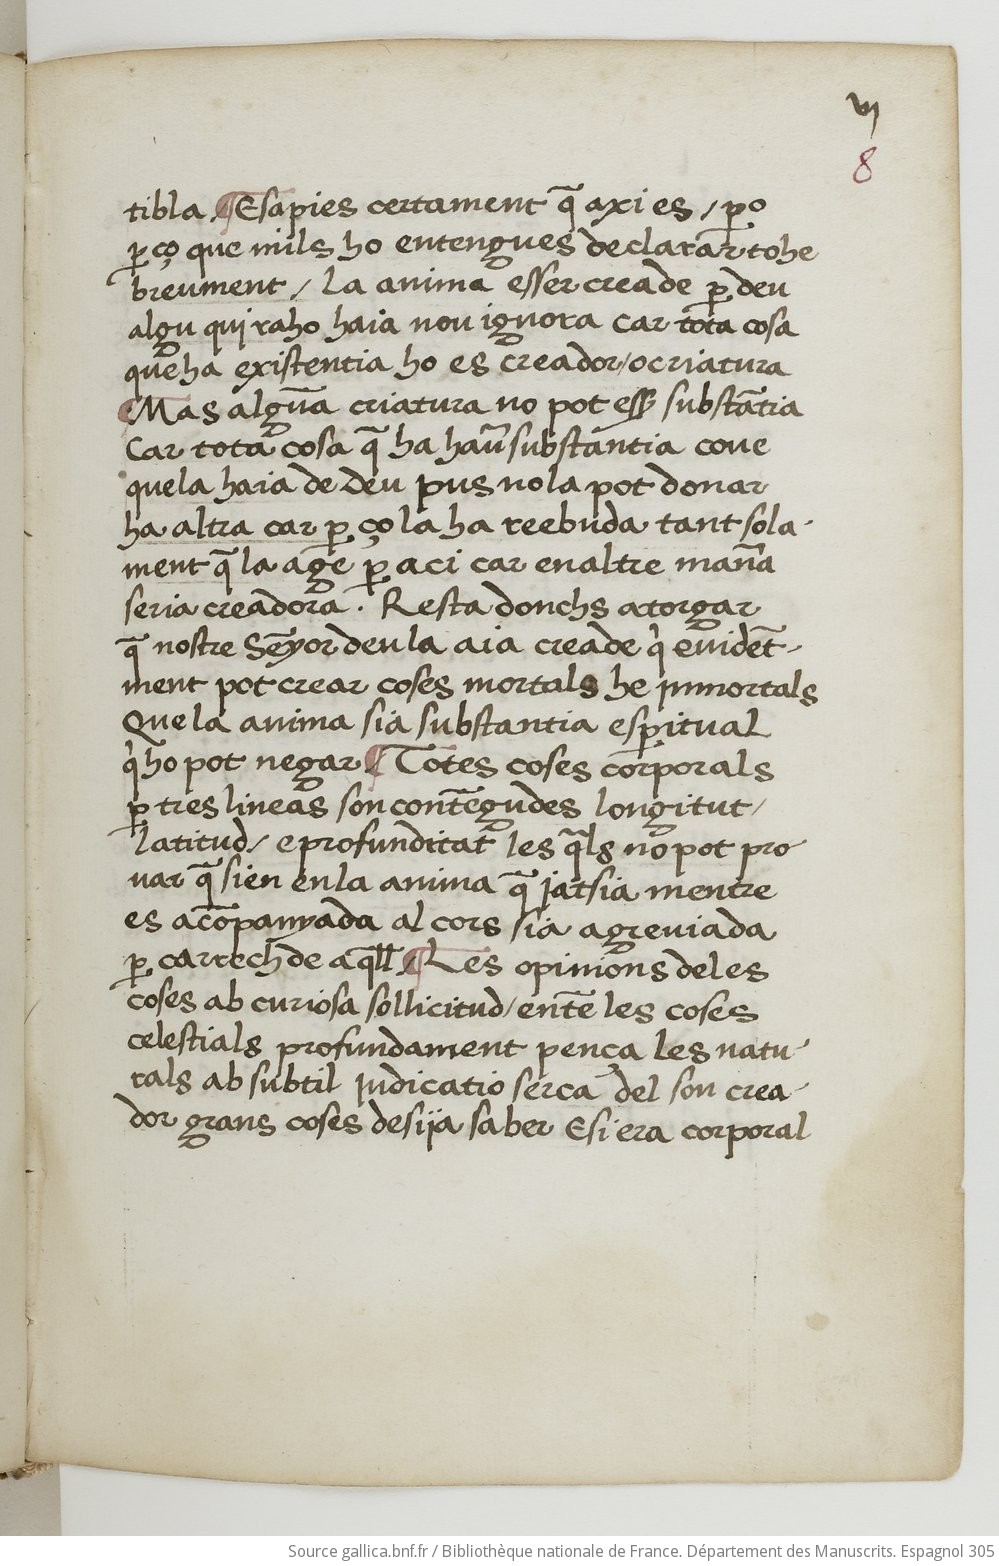 vj
8
tibla / ¶ E sapies certament q̄ axi es / ꝑo
ꝑ ço que mils ho entengues declarar tohe
breument / la anima esser creade ꝑ deu
algu qui raho haia nou ignora car tota cosa
que ha existentia ho es creador / o criatura
¶ Mas algūa criatura no pot esſ substātia
Car tota cosa q̄ ha hau̅ substantia coue
que la haia de deu pus no la pot donar
ha altra car ꝑ ço la ha reebuda tant sola-
ment q̄ la age ꝑ aci car en altre man̄a
seria creadora . Resta donchs atorgar
q̄ nostre Sēyor deu la aia creade q̇ euidēt-
ment pot crear coses mortals he inmortals
Que la anima sia substantia esꝑitual
q̇ ho pot negar ¶ Totes coses corporals
ꝑ tres lineas son contēgudes longitut /
latitud / e profunditat les q̄ls no pot pro-
uar q̄ sien en la anima q̄ jatsia mentre
es acōpanyada al cors sia agreuiada
ꝑ carrech de aq̄ll / ¶ Les opinions de les
coses ab curiosa sollicitud / entē les coses
celestials profundament pença les natu-
rals ab subtil judicatio serca del son crea-
dor grans coses desija saber E si era corporal
Source gallica.bnf.fr / Bibliothèque nationale de France. Département des Manuscrits. Espagnol 305